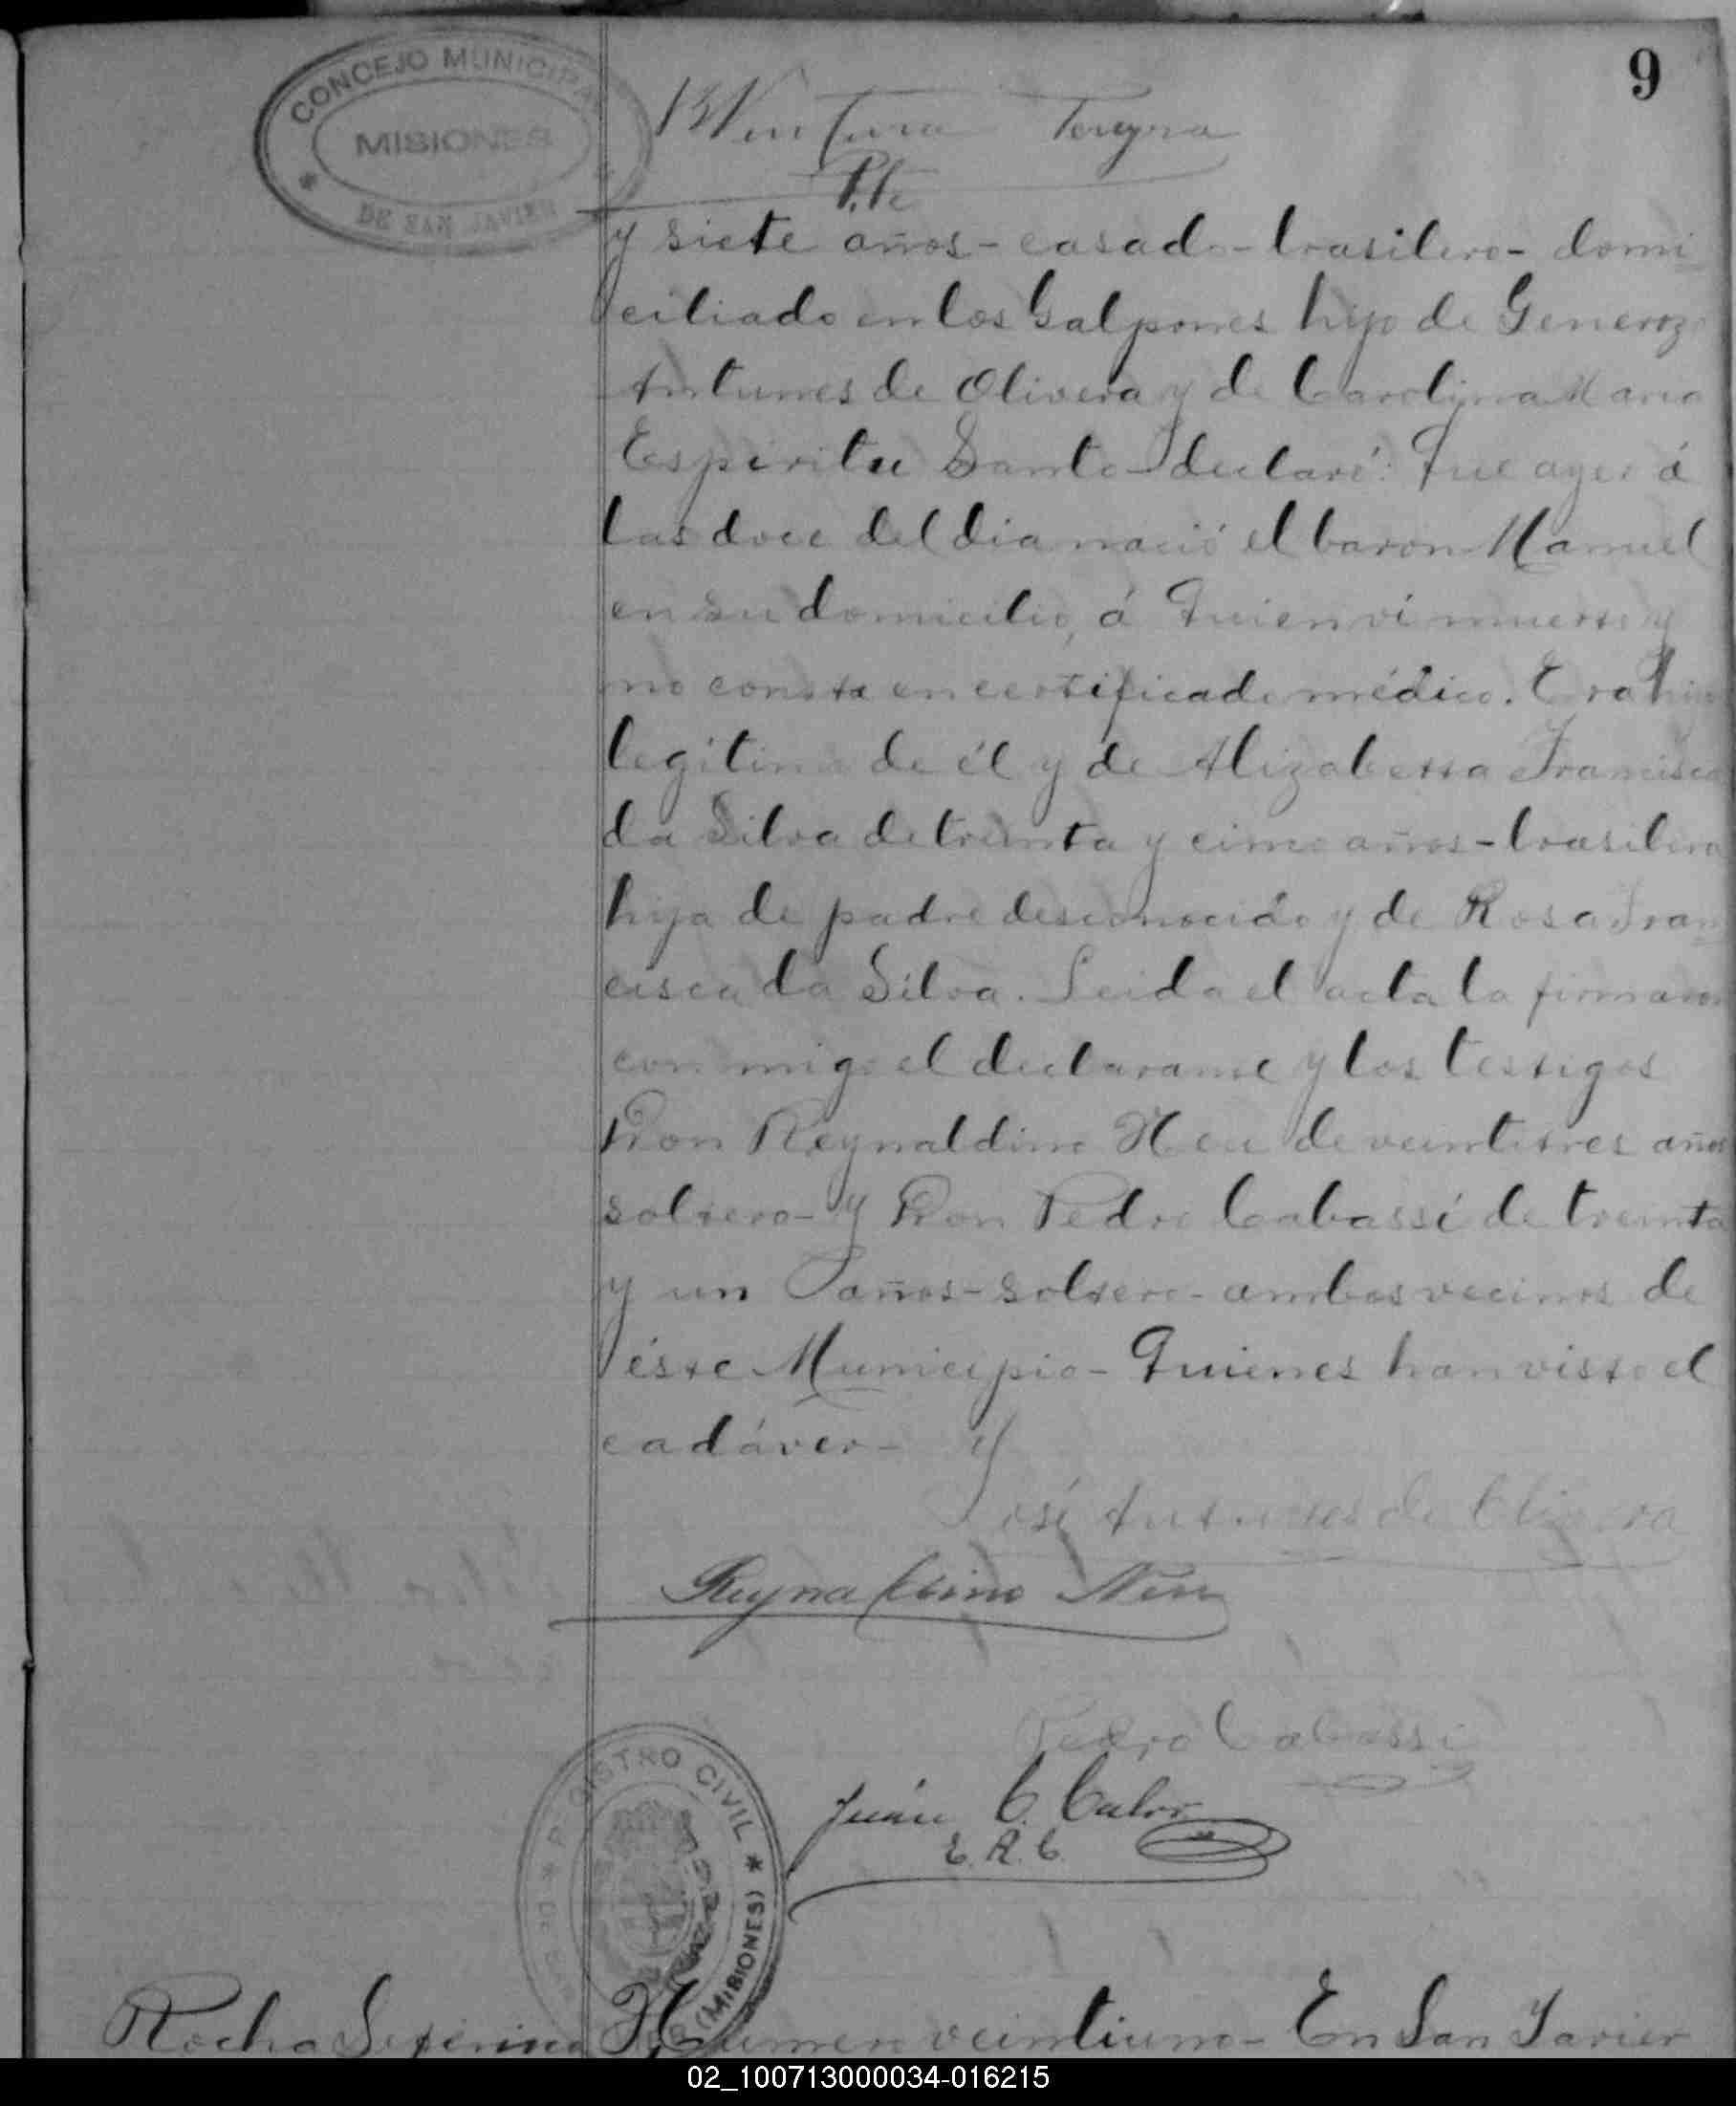 9
CONCEJO MUNICIPAL
MISIONES
DE SAN JAVIER
BVentura Tereyra
Pte
y siete años - casado - brasilero - domi
ciliado en los Galpones hijo de Generozo
Antunes de Olivera y de Carolina Maria
Espiritu Santo - declaró: Que ayer á
las doce del dia nació el baron Manuel
en su domicilio, á quien ví muerto y
no consta en certificado médico. Era hijo
legítimo de él y de Alizabetta Francisca
da Silva de treinta y cinco años - brasilera
hija de padre desconocido y de Rosa Fran
cisca da Silva. Leida el acta la firmaron
conmigo el declarante y los testigos
Don Reynaldino Neu de veintitres años
soltero - y Don Pedro Cabassi de treinta
y un años - soltero - ambos vecinos de
éste Municipio - Quienes han visto el
cadáver -
José Antunes de Olivera
Reynaldino Neu
Pedro Cabassi
Juan C.
E. R. C.
REGISTRO CIVIL
(MISIONES)
Rocha Seferino Número veintiuno - En San Javier
02_100713000034-016215